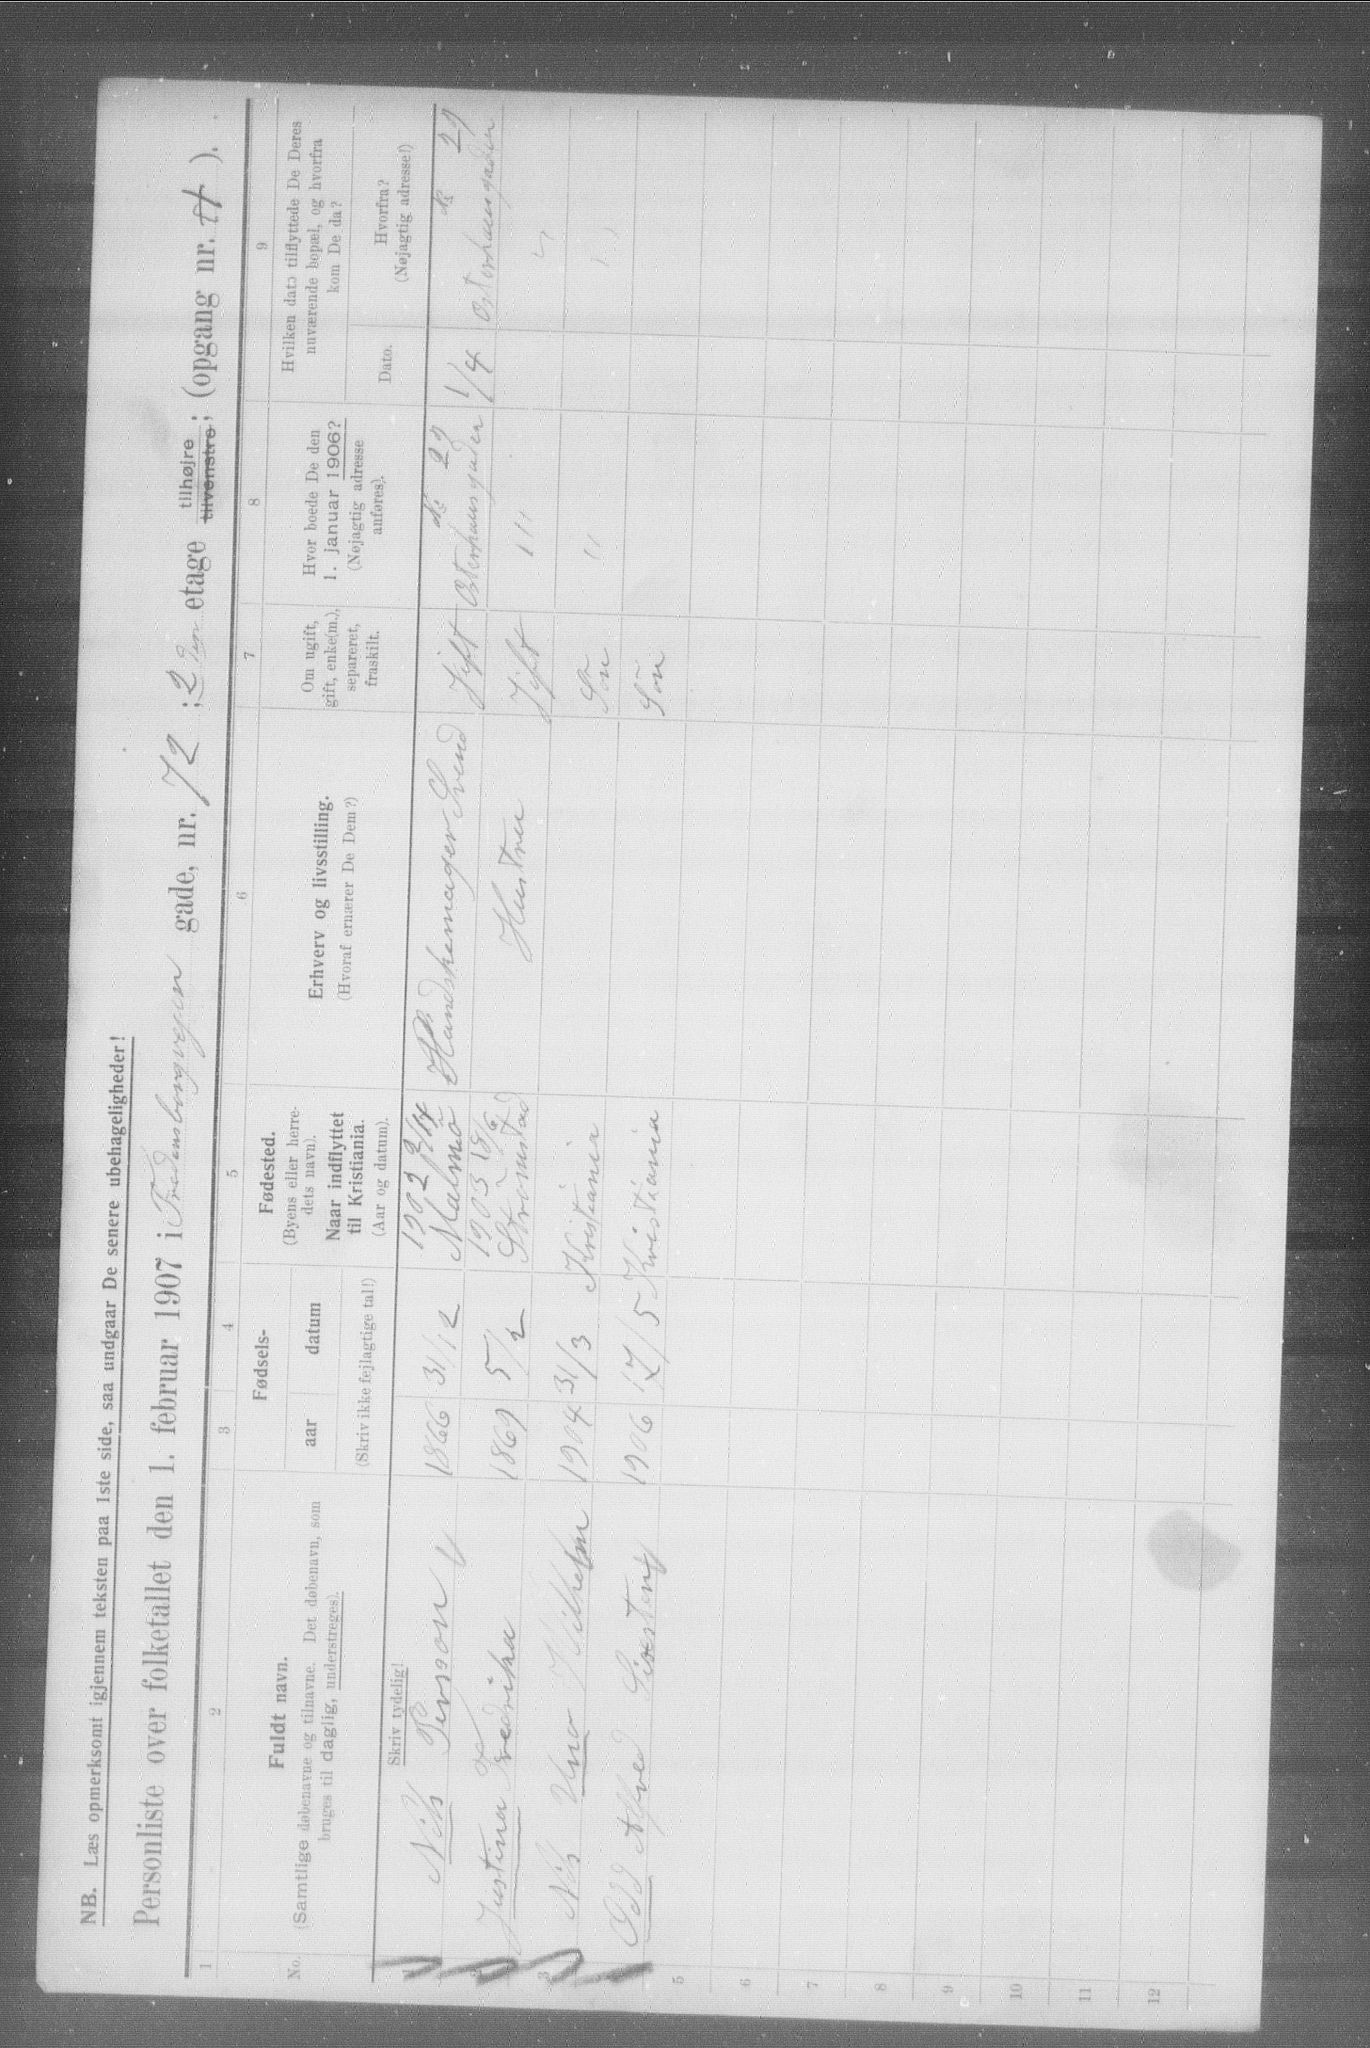 NB. Læs opmerksomt igjennem teksten paa 1ste side, saa undgaar De senere ubehageligheder!
Personliste over folketallet den 1. februar 1907 i Fredensborgvejen gade, nr. 72 ; 2den etage tilhøjre ; (opgang nr. ).
tilvenstre
1 2 3 4 5 6 7 8 9
No.
Fuldt navn.
(Samtlige døbenavne og tilnavne. Det døbenavn, som
bruges til daglig, understreges).
Skriv tydelig!
Fødsels-
aar datum
(Skriv ikke fejlagtige tal!)
Fødested.
(Byens eller herre-
dets navn).
Naar indflyttet
til Kristiania.
(Aar og datum).
Erhverv og livsstilling.
(Hvoraf ernærer De Dem?)
Om ugift,
gift, enke(m.),
separeret,
fraskilt.
Hvor boede De den
1. januar 1906?
(Nøjagtig adresse
anføres).
Hvilken dato tilflyttede De Deres
nuværende bopæl, og hvorfra
kom De da?
Dato.
Hvorfra?
(Nøjagtig adresse!)
1 Nils Persson 1866 31/12 1902 Malmö Handskemager Svend Gift Osterhausgaden № 29 1/4 Osterhausgaden № 29
2 Justina Fredrika 1869 5/2 1903 Strömstad Hustru Gift " "
3 Nils Uno Vilhelm 1904 31/3 Kristiania Sön " "
4 Odd Alfred 1906 17/5 Kristiania Sön
5
6
7
8
9
10
11
12